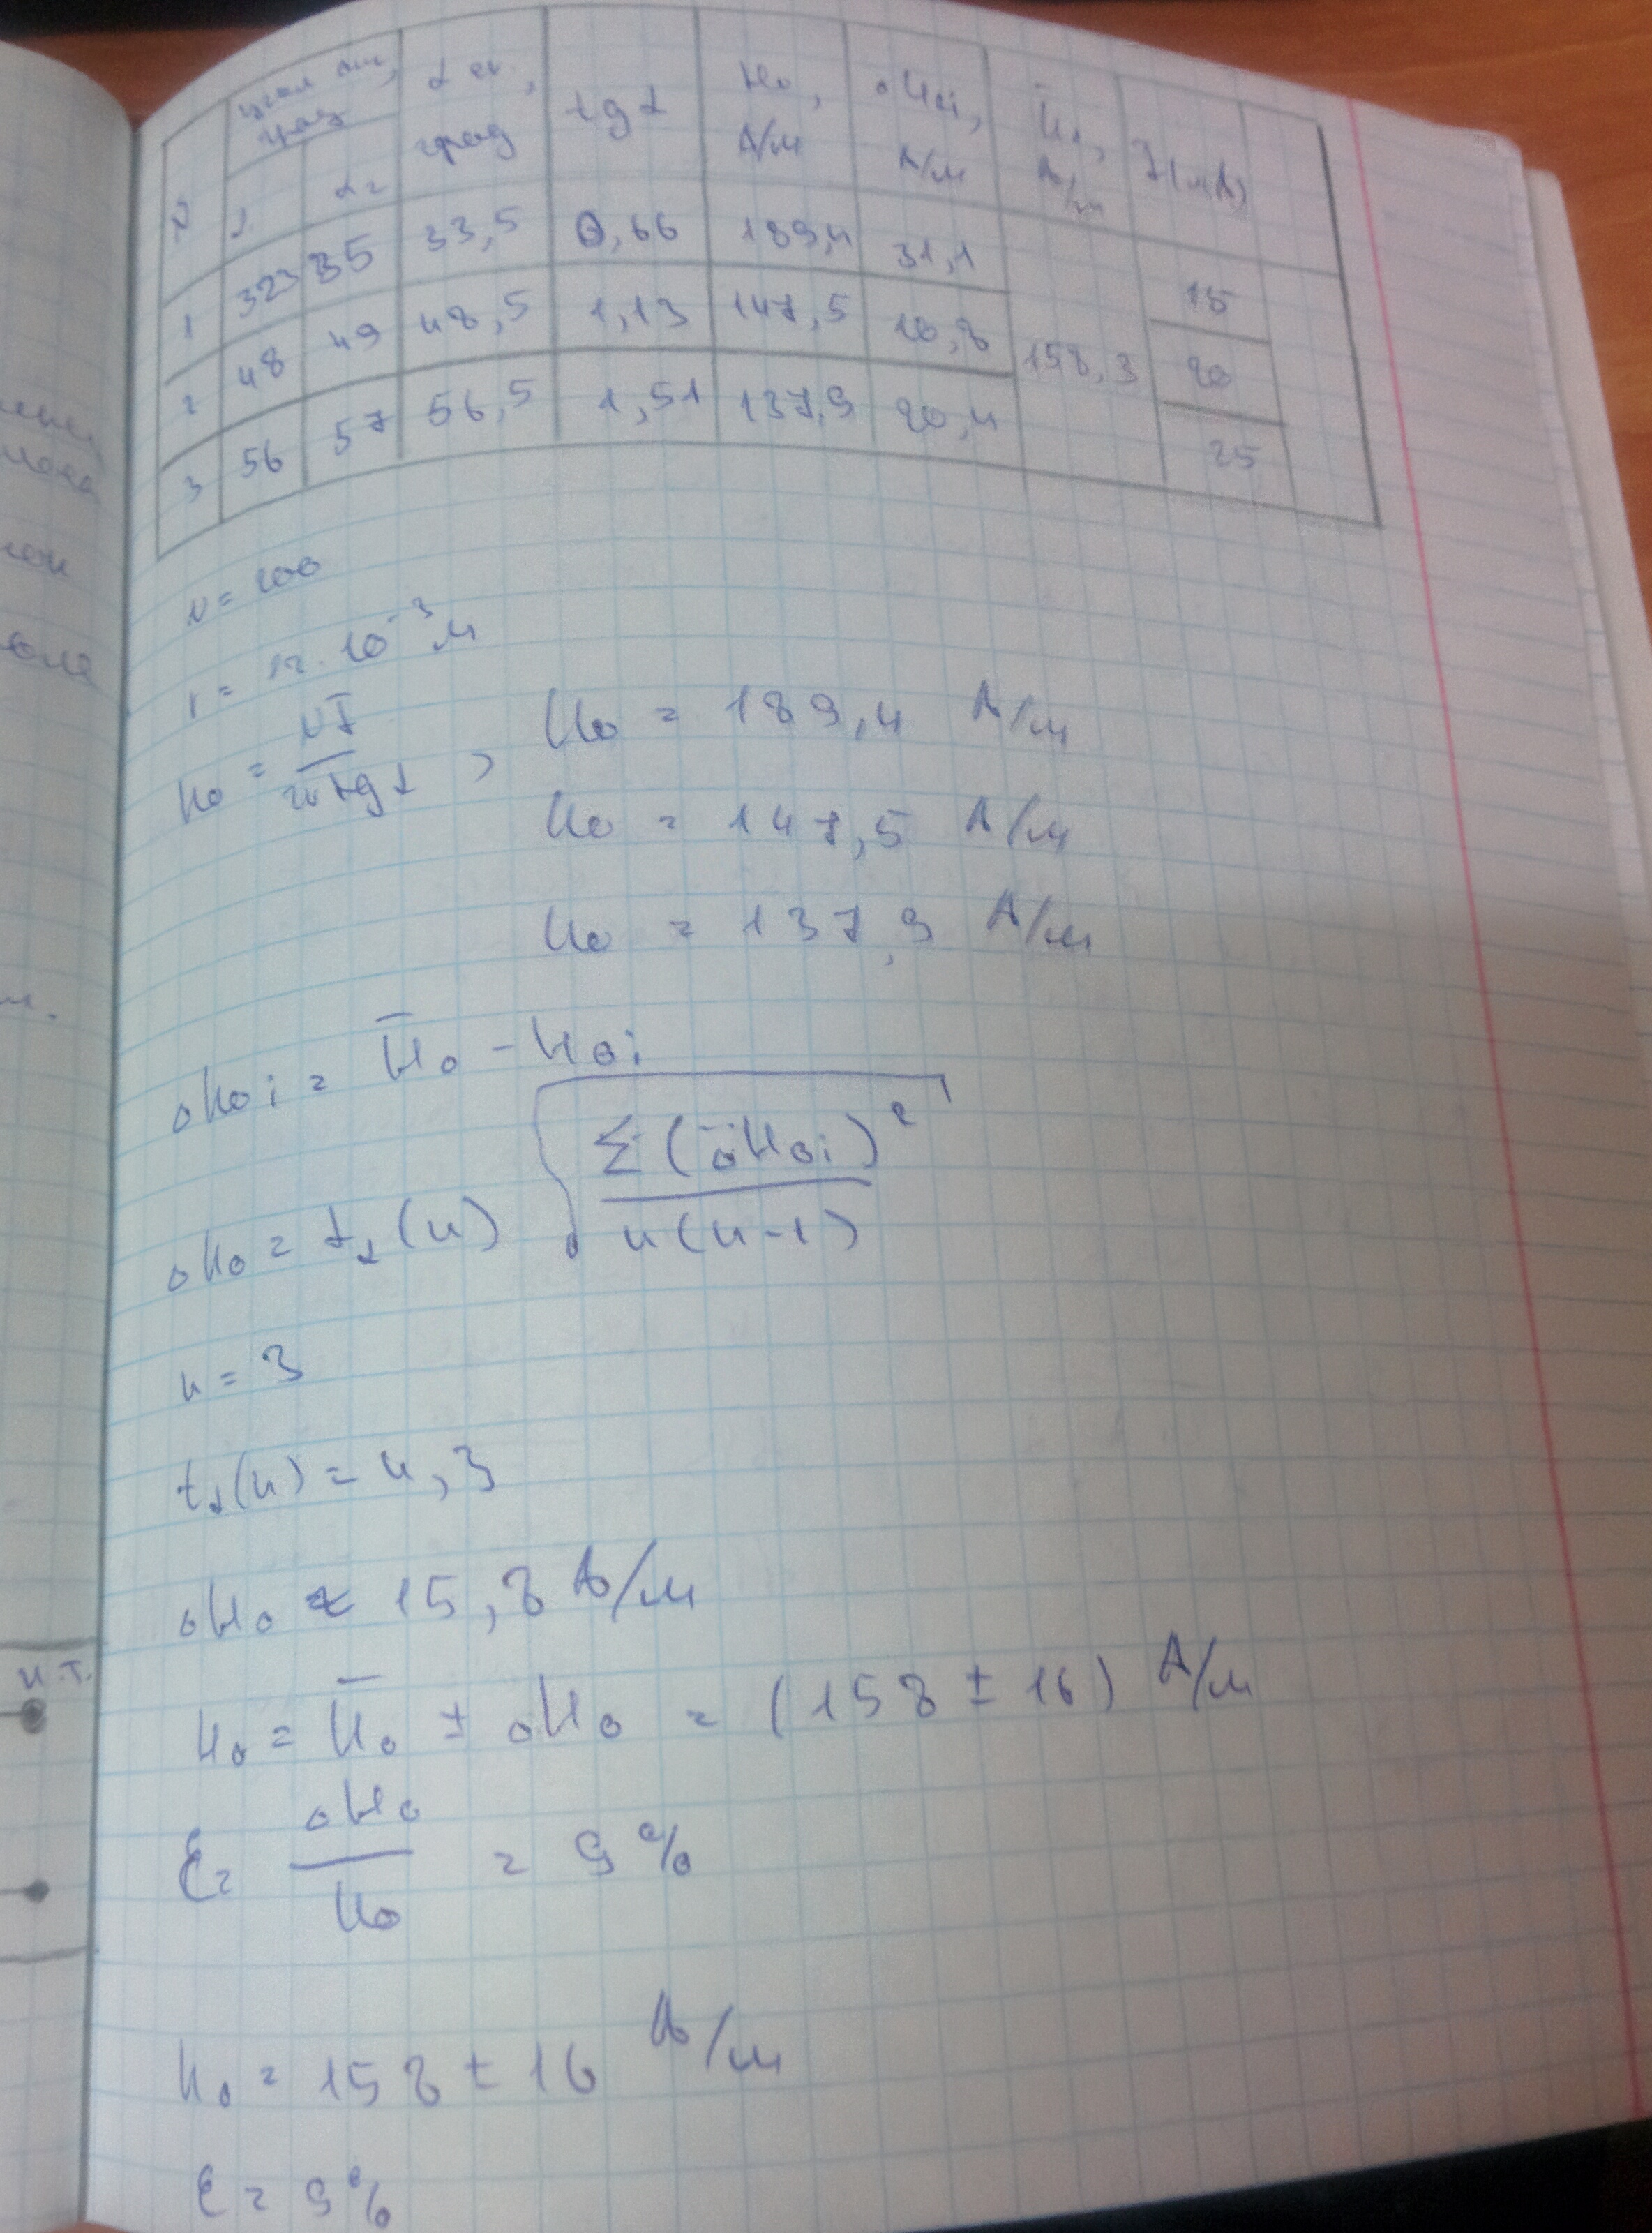 N угол от., град α ср., град tg α H₀, А/м ΔH₀ᵢ, А/м H̄₀, А/м I(мА)
α₂
1 323 35 33,5 0,66 189,4 31,1 158,3 15
2 48 49 48,5 1,13 147,5 10,8 20
3 56 57 56,5 1,51 137,9 20,4 25
N = 200
r = 12 · 10⁻³ м
H₀ = NI / 2r tg α , H₀ = 189,4 А/м
H₀ = 147,5 А/м
H₀ = 137,9 А/м
ΔH₀ᵢ = H̄₀ - H₀ᵢ
ΔH₀ = t_α(n) √(Σ(ΔH₀ᵢ)² / n(n-1))
n = 3
t_α(n) = 4,3
ΔH₀ ≈ 15,8 А/м
H₀ = H̄₀ ± ΔH₀ = (158 ± 16) А/м
ε = ΔH₀ / H₀ = 9 %
H₀ = 158 ± 16 А/м
ε = 9 %
и.т.